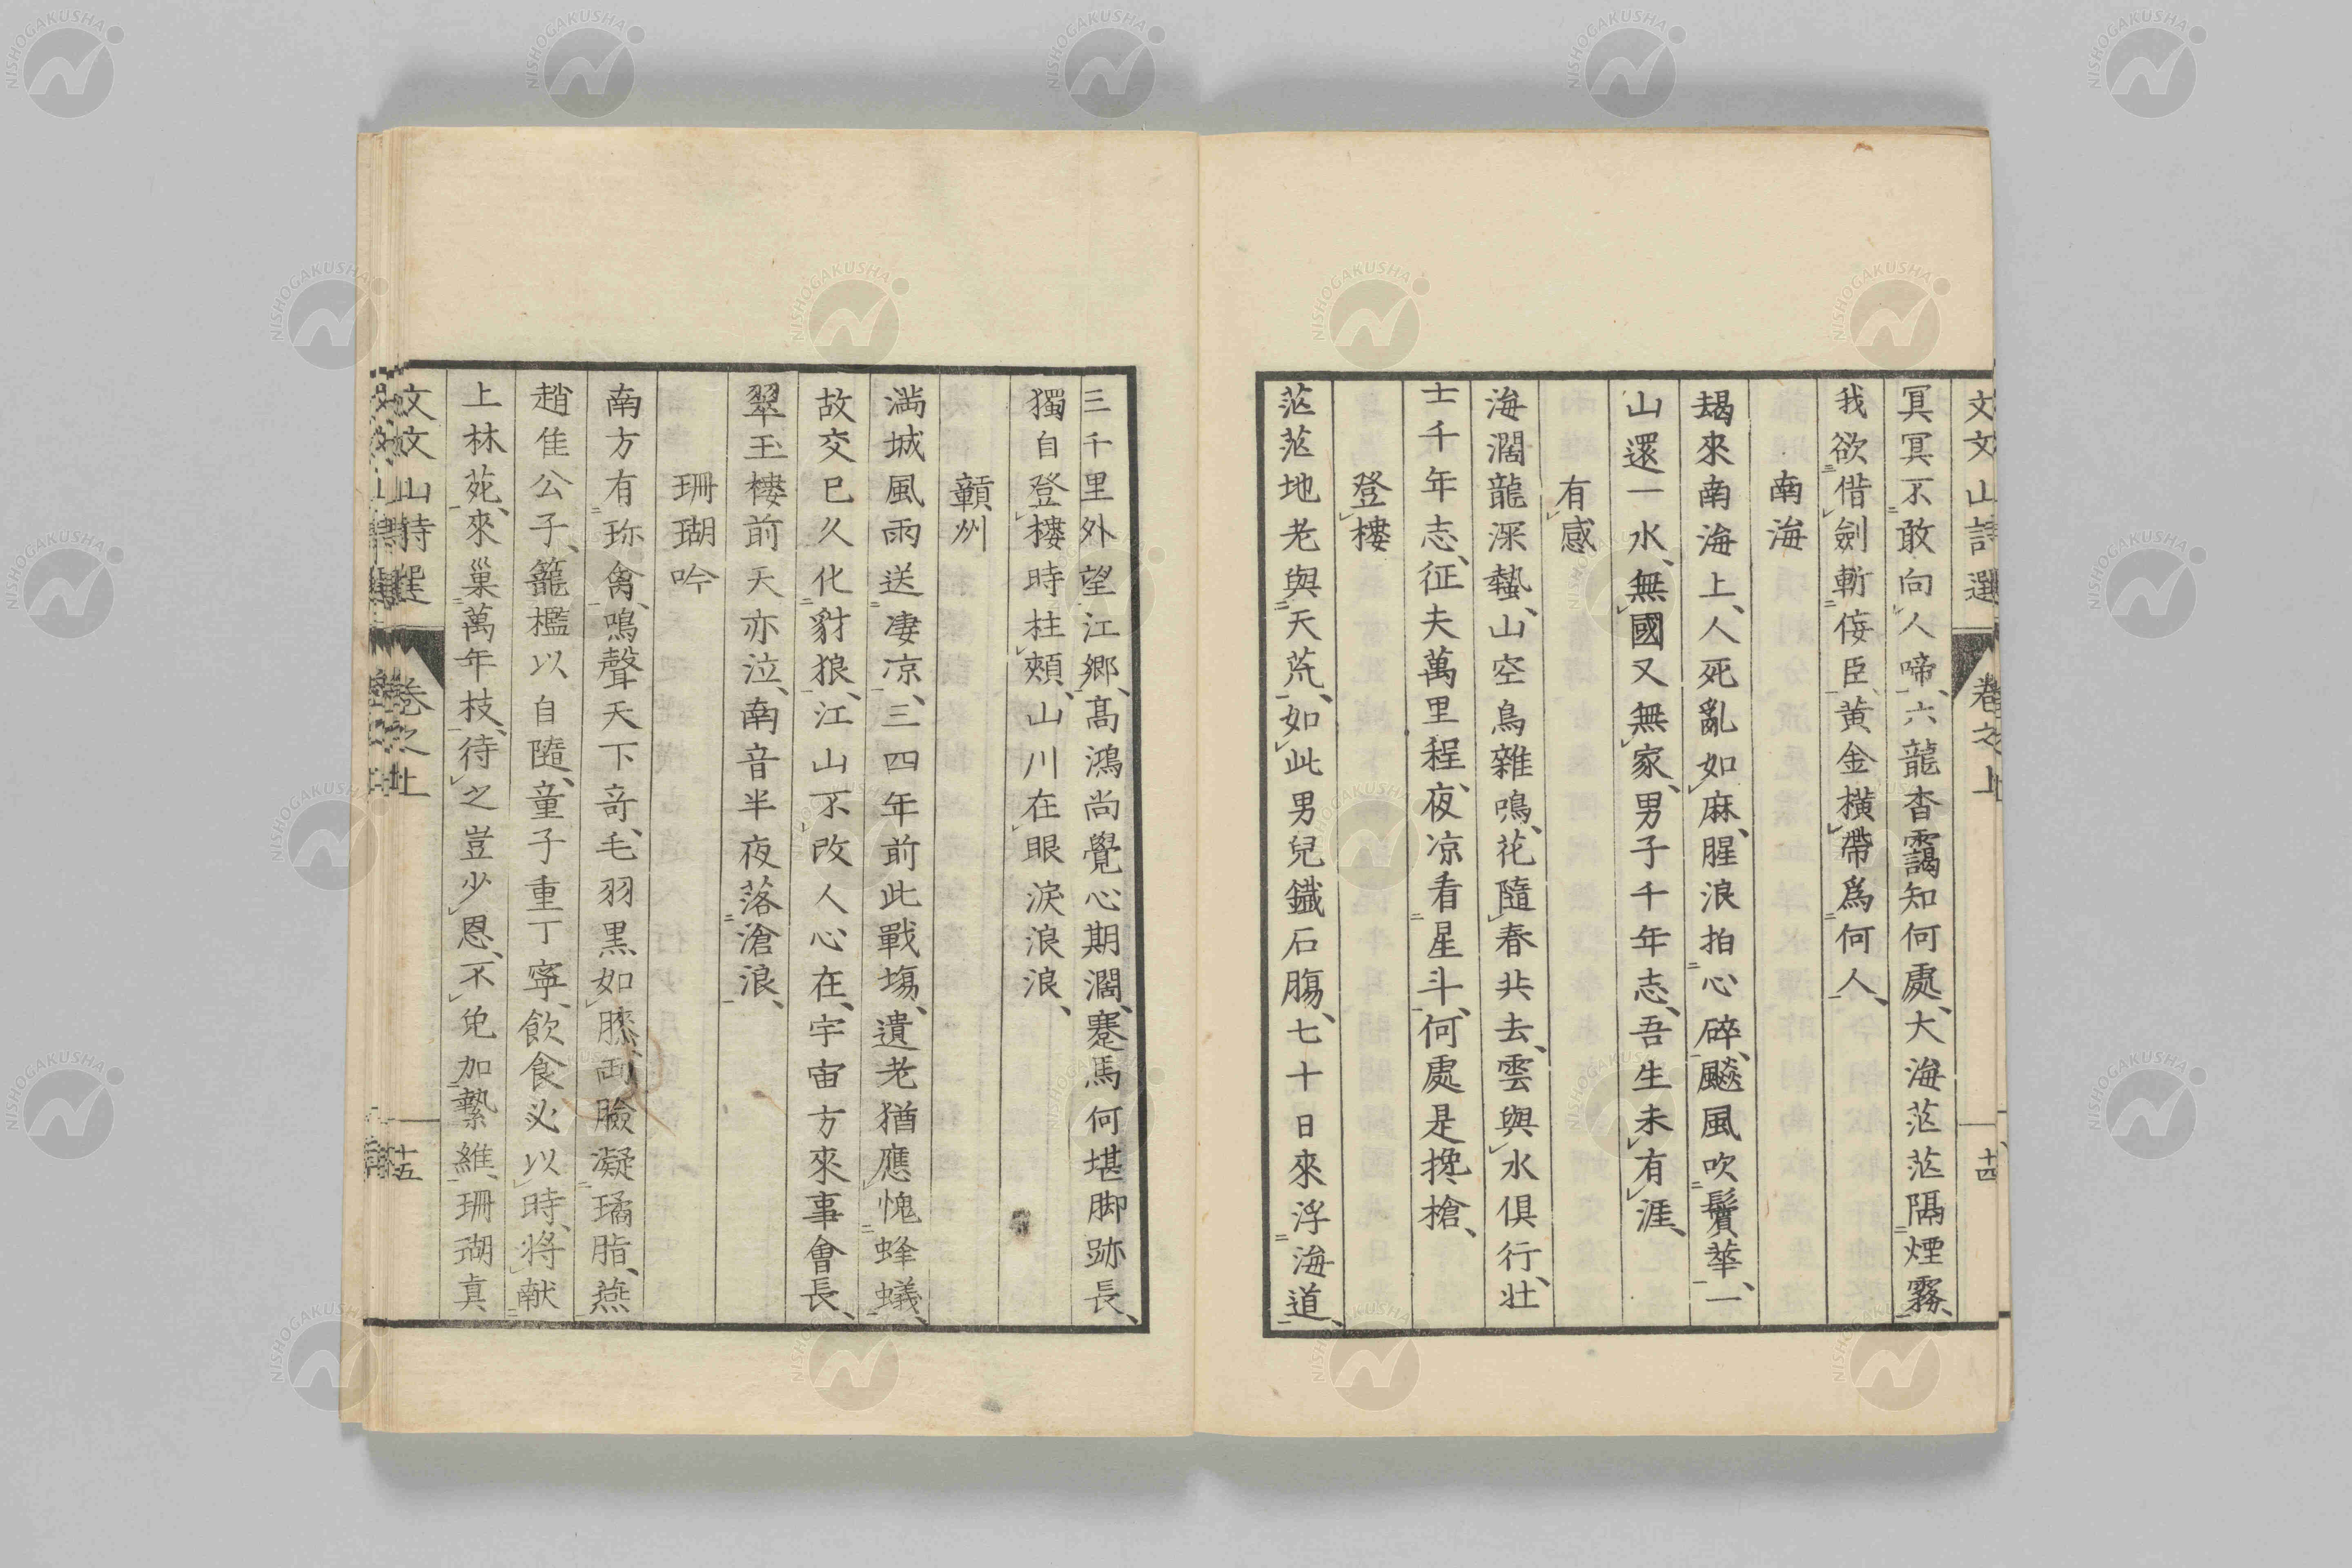 文文山詩選 卷之上 十四
冥冥不敢向人啼、六龍杳靄知何處、大海茫茫隔煙霧、
我欲借劍斬佞臣、黃金橫帶爲何人、
南海
朅來南海上、人死亂如麻、腥浪拍心碎、飈風吹鬢華、一
山還一水、無國又無家、男子千年志、吾生未有涯、
有感
海濶龍深蟄、山空鳥雜鳴、花隨春共去、雲與水俱行、壮
士千年志、征夫萬里程、夜凉看星斗、何處是攙槍、
登樓
茫茫地老與天荒、如此男兒鐵石膓、七十日來浮海道、
三千里外望江郷、高鴻尚覺心期濶、蹇馬何堪脚跡長、
獨自登樓時柱頰、山川在眼淚浪浪、
贛州
満城風雨送凄凉、三四年前此戰塲、遺老猶應愧蜂蟻、
故交已久化豺狼、江山不改人心在、宇宙方來事會長、
翠玉樓前天亦泣、南音半夜落滄浪、
珊瑚吟
南方有珎禽、鳴聲天下竒、毛羽黒如漆、両臉凝璚脂、燕
趙佳公子、籠檻以自隨、童子重丁寧、飲食必以時、将献
上林苑、來巢萬年枝、待之豈少恩、不免加縶維、珊瑚真
文文山詩選 卷之上 十五
NISHOGAKUSHA